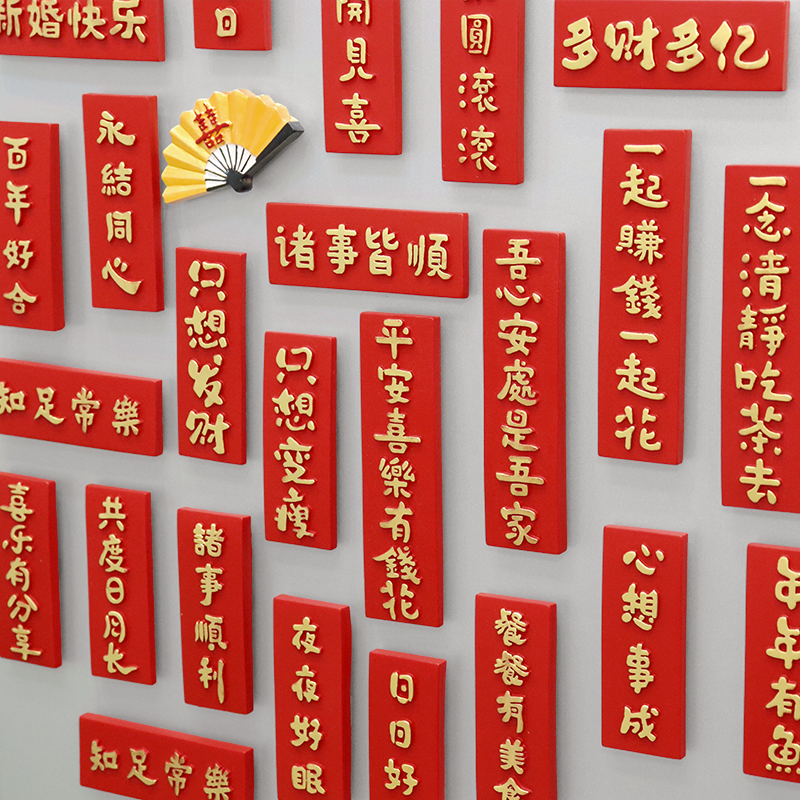 新婚快乐
日
開見喜
圓滾滾
多财多亿
百年好合
永結同心
囍
只想发财
诸事皆順
只想变瘦
平安喜樂有錢花
吾心安處是吾家
一起賺錢一起花
一念清靜吃茶去
知足常樂
喜乐有分享
共度日月长
諸事順利
夜夜好眠
日日好
餐餐有美食
心想事成
年年有魚
知足常樂